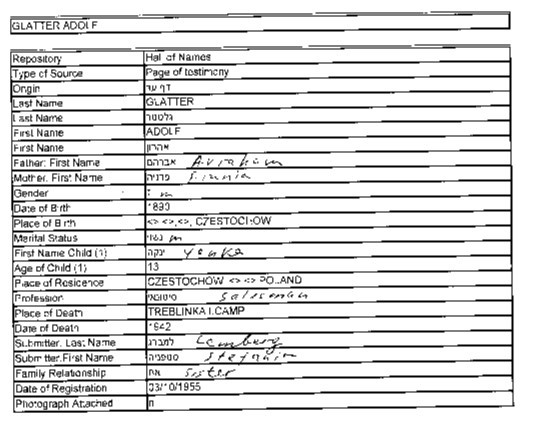 GLATTER ADOLF
Repository Hall of Names
Type of Source Page of testimony
Origin דף עד
Last Name GLATTER
Last Name גלטר
First Name ADOLF
First Name אהרון
Father: First Name אברהם Avraham
Mother. First Name
Gender m
Date of Birth 1890
Place of Birth <> <>, <>, CZESTOCHOW
Marital Status נשוי m
First Name Child (1) ינקה Yenka
Age of Child (1) 13
Place of Residence CZESTOCHOW <> <> POLAND
Profession Salesman
Place of Death TREBLINKA I.CAMP
Date of Death 1942
Submitter. Last Name למברג Lemberg
Submitter.First Name סטפניה Stefania
Family Relationship אח Sister
Date of Registration 03/10/1955
Photograph Attached